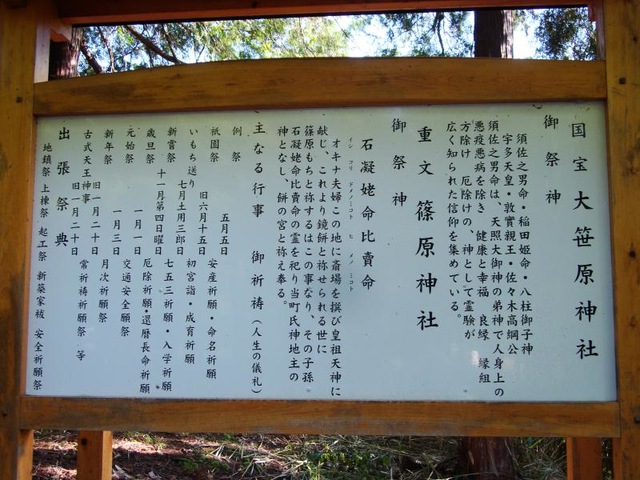 国宝 大笹原神社
御祭神
須佐之男命・稲田姫命・八柱御子神
宇多天皇・敦實親王・佐々木高綱公
須佐之男命は、天照大御神の弟神で人身上の
悪疫悪病を除き、健康と幸福 良縁 縁組
方除け、厄除けの、神として霊験が
広く知られた信仰を集めている。
重文 篠原神社
御祭神
イシ コリ ドメノミコト ヒ メノ ミコト
石凝姥命比賣命
オキナ夫婦この地に斎場を撰び皇祖天神に
献じ、これより鏡餅と祢せられる世に
篠原もちと祢するはこの事なり、その子孫
石凝姥命比賣命の霊を祀り当町氏神地主の
神となし、餅の宮と祢え奉る。
主なる行事 御祈祷(人生の儀礼)
例祭 五月五日 安産祈願・命名祈願
祇園祭 旧六月十五日 初宮詣・成育祈願
いもち送り 七月土用三郎日 七五三祈願・入学祈願
新嘗祭 十一月第四日曜日 厄除祈願・還暦長命祈願
歳旦祭 一月一日 交通安全願祭
元始祭 一月三日 月次祈願祭
新年祭 旧一月二十日 常祈祷祈願祭 等
古式天王神事 旧一月二十日
出張祭典
地鎮祭 上棟祭 起工祭 新築家祓 安全祈願祭